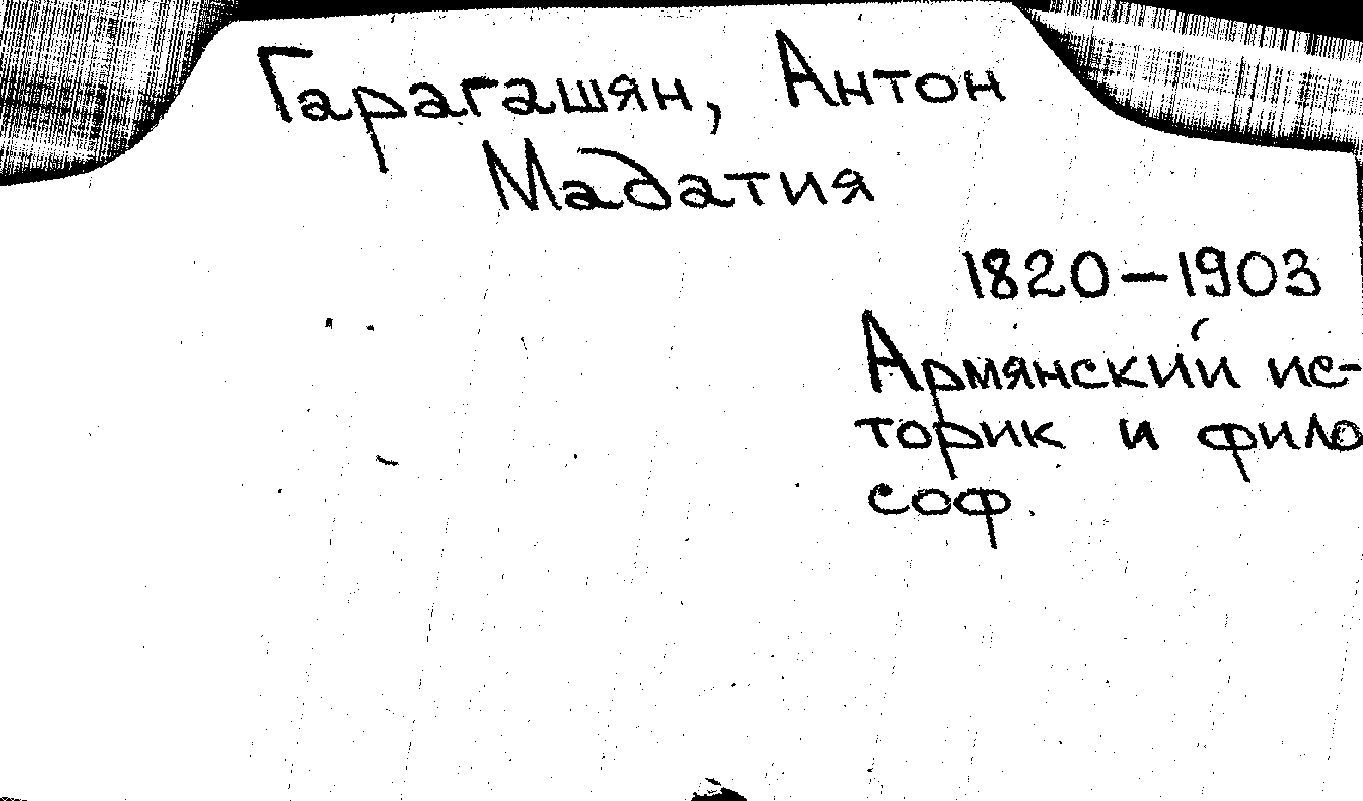 Гарагашян, Антон
Мадатия
1820–1903
Армянский ис-
торик и фило
соф.